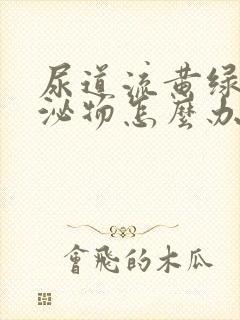 尿道流黄绿
泌物怎麼办
會飛的木瓜